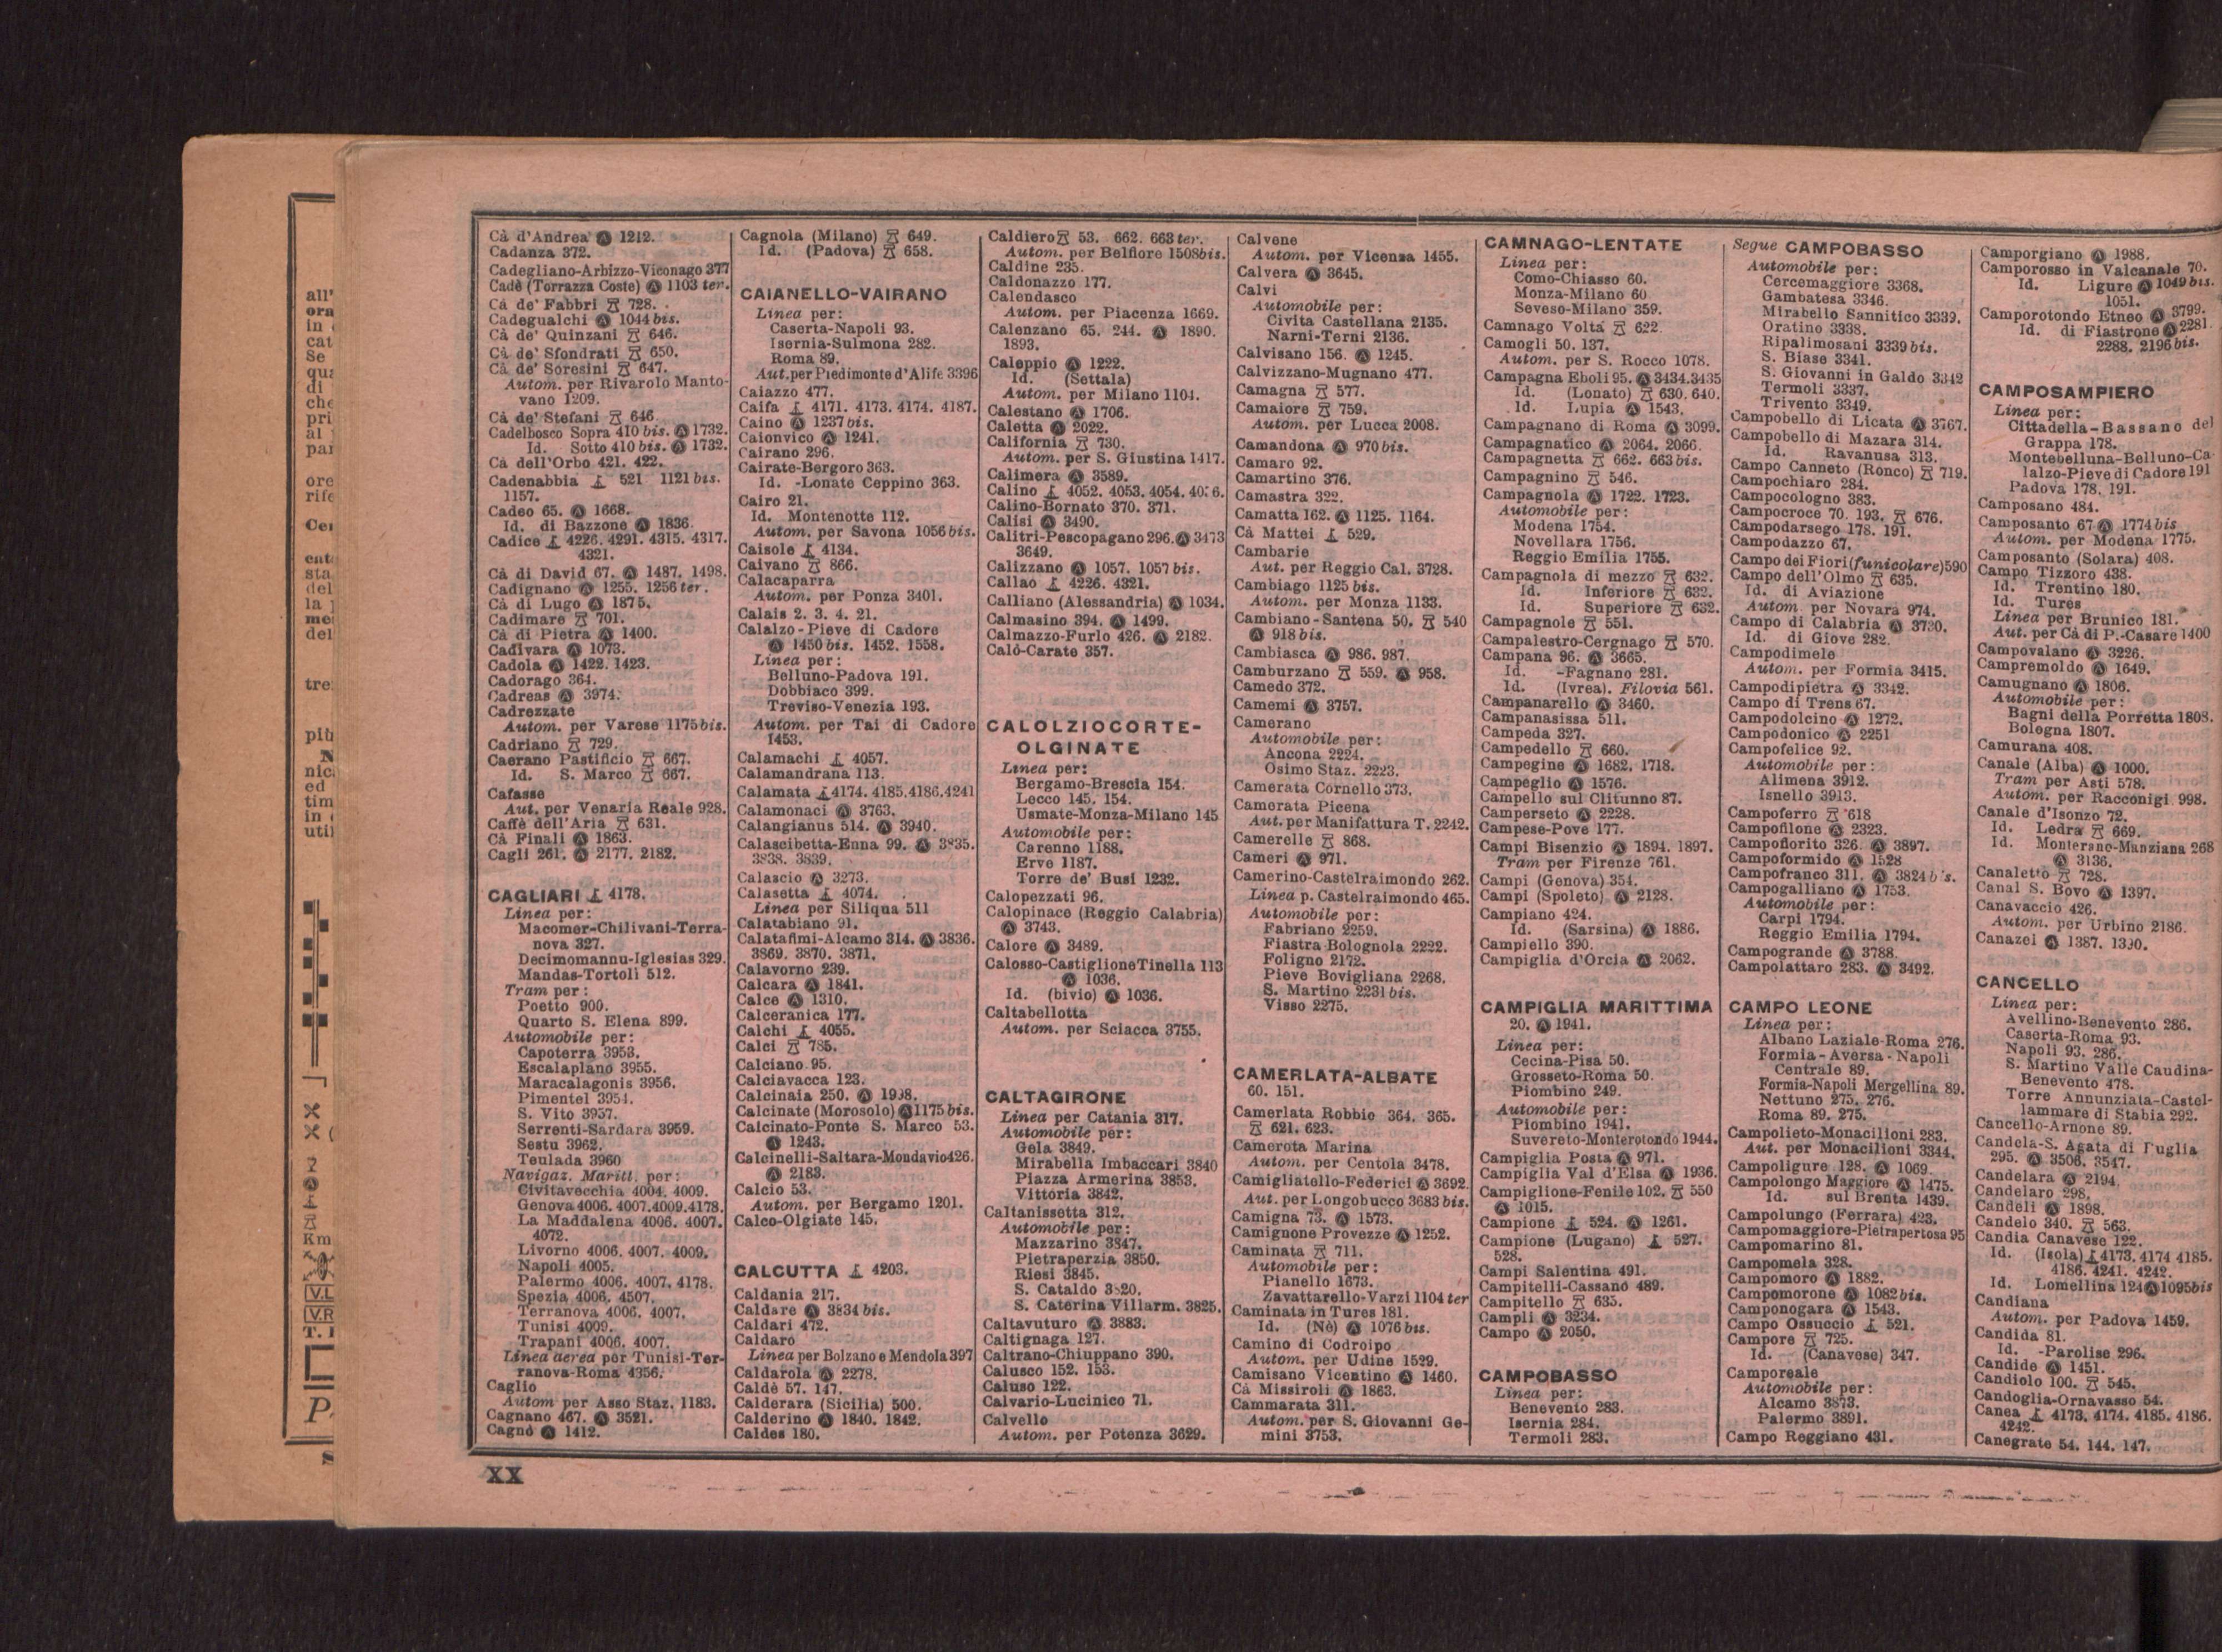 Cà d'Andrea Ⓐ 1212.
Cadanza 372.
Cadegliano-Arbizzo-Viconago 377
Cadè (Torrazza Coste) Ⓐ 1103 ter.
Cà de' Fabbri 728.
Cadegualchi Ⓐ 1044 bis.
Cà de' Quinzani 646.
Cà de' Sfondrati 650.
Cà de' Soresini 647.
Autom. per Rivarolo Manto-
vano 1209.
Cà de' Stefani 646.
Cadelbosco Sopra 410 bis. Ⓐ 1732.
Id. Sotto 410 bis. Ⓐ 1732.
Cà dell'Orbo 421. 422.
Cadenabbia 521 1121 bis.
1157.
Cadeo 65. Ⓐ 1668.
Id. di Bazzone Ⓐ 1836.
Cadice 4226. 4291. 4315. 4317.
4321.
Cà di David 67. Ⓐ 1487. 1498.
Cadignano Ⓐ 1255. 1256 ter.
Cà di Lugo Ⓐ 1875.
Cadimare 701.
Cà di Pietra Ⓐ 1400.
Cadivara Ⓐ 1073.
Cadola Ⓐ 1422. 1423.
Cadorago 364.
Cadreas Ⓐ 3974.
Cadrezzate
Autom. per Varese 1175 bis.
Cadriano 729.
Caerano Pastificio 667.
Id. S. Marco 667.
Cafasse
Aut. per Venaria Reale 928.
Caffè dell'Aria 631.
Cà Finali Ⓐ 1863.
Cagli 261. Ⓐ 2177. 2182.
CAGLIARI 4178.
Linea per:
Macomer-Chilivani-Terra-
nova 327.
Decimomannu-Iglesias 329.
Mandas-Tortolì 512.
Tram per:
Poetto 900.
Quarto S. Elena 899.
Automobile per:
Capoterra 3953.
Escalaplano 3955.
Maracalagonis 3956.
Pimentel 3954.
S. Vito 3957.
Serrenti-Sardara 3959.
Sestu 3962.
Teulada 3960
Navigaz. Maritt. per:
Civitavecchia 4004. 4009.
Genova 4006. 4007. 4009. 4178.
La Maddalena 4006. 4007.
4072.
Livorno 4006. 4007. 4009.
Napoli 4005.
Palermo 4006. 4007. 4178.
Spezia 4006. 4507.
Terranova 4006. 4007.
Tunisi 4009.
Trapani 4006. 4007.
Linea aerea per Tunisi-Ter-
ranova-Roma 4356.
Caglio
Autom per Asso Staz. 1183.
Cagnano 467. Ⓐ 3521.
Cagnò Ⓐ 1412.
Cagnola (Milano) 649.
Id. (Padova) 658.
CAIANELLO-VAIRANO
Linea per:
Caserta-Napoli 93.
Isernia-Sulmona 282.
Roma 89.
Aut. per Piedimonte d'Alife 3396
Caiazzo 477.
Caifa 4171. 4173. 4174. 4187.
Caino Ⓐ 1237 bis.
Caionvico Ⓐ 1241.
Cairano 296.
Cairate-Bergoro 363.
Id. -Lonate Ceppino 363.
Cairo 21.
Id. Montenotte 112.
Autom. per Savona 1056 bis.
Caisole 4134.
Caivano 866.
Calacaparra
Autom. per Ponza 3401.
Calais 2. 3. 4. 21.
Calalzo-Pieve di Cadore
Ⓐ 1450 bis. 1452. 1558.
Linea per:
Belluno-Padova 191.
Dobbiaco 399.
Treviso-Venezia 193.
Autom. per Tai di Cadore
1453.
Calamachi 4057.
Calamandrana 113.
Calamata 4174. 4185. 4186. 4241
Calamonaci Ⓐ 3763.
Calangianus 514. Ⓐ 3940.
Calascibetta-Enna 99. Ⓐ 3835.
3838. 3839.
Calascio Ⓐ 3273.
Calasetta 4074.
Linea per Siliqua 511
Calatabiano 91.
Calatafimi-Alcamo 314. Ⓐ 3836.
3869. 3870. 3871.
Calavorno 239.
Calcara Ⓐ 1841.
Calce Ⓐ 1310.
Calceranica 177.
Calchi 4055.
Calci 785.
Calciano 95.
Calciavacca 123.
Calcinaia 250. Ⓐ 1998.
Calcinate (Morosolo) Ⓐ 1175 bis.
Calcinato-Ponte S. Marco 53.
Ⓐ 1243.
Calcinelli-Saltara-Mondavio 426.
Ⓐ 2183.
Calcio 53.
Autom. per Bergamo 1201.
Calco-Olgiate 145.
CALCUTTA 4203.
Caldania 217.
Caldare Ⓐ 3834 bis.
Caldari 472.
Caldaro
Linea per Bolzano e Mendola 397
Caldarola Ⓐ 2278.
Caldè 57. 147.
Calderara (Sicilia) 500.
Calderino Ⓐ 1840. 1842.
Caldes 180.
Caldiero 53. 662. 663 ter.
Autom. per Belfiore 1508 bis.
Caldine 235.
Caldonazzo 177.
Calendasco
Autom. per Piacenza 1669.
Calenzano 65. 244. Ⓐ 1890.
1893.
Caleppio Ⓐ 1222.
Id. (Settala)
Autom. per Milano 1104.
Calestano Ⓐ 1706.
Caletta Ⓐ 2022.
California 730.
Autom. per S. Giustina 1417.
Calimera Ⓐ 3589.
Calino 4052. 4053. 4054. 4056.
Calino-Bornato 370. 371.
Calisi Ⓐ 3490.
Calitri-Pescopagano 296. Ⓐ 3473
3649.
Calizzano Ⓐ 1057. 1057 bis.
Callao 4226. 4321.
Calliano (Alessandria) Ⓐ 1034.
Calmasino 394. Ⓐ 1499.
Calmazzo-Furlo 426. Ⓐ 2182.
Calò-Carate 357.
CALOLZIOCORTE-
OLGINATE
Linea per:
Bergamo-Brescia 154.
Lecco 145. 154.
Usmate-Monza-Milano 145
Automobile per:
Carenno 1188.
Erve 1187.
Torre de' Busi 1232.
Calopezzati 96.
Calopinace (Reggio Calabria)
Ⓐ 3743.
Calore Ⓐ 3489.
Calosso-Castiglione Tinella 113
Ⓐ 1036.
Id. (bivio) Ⓐ 1036.
Caltabellotta
Autom. per Sciacca 3755.
CALTAGIRONE
Linea per Catania 317.
Automobile per:
Gela 3849.
Mirabella Imbaccari 3840
Piazza Armerina 3853.
Vittoria 3842.
Caltanissetta 312.
Automobile per:
Mazzarino 3847.
Pietraperzia 3850.
Riesi 3845.
S. Cataldo 3820.
S. Caterina Villarm. 3825.
Caltavuturo Ⓐ 3883.
Caltignaga 127.
Caltrano-Chiuppano 390.
Calusco 152. 153.
Caluso 122.
Calvario-Lucinico 71.
Calvello
Autom. per Potenza 3629.
Calvene
Autom. per Vicenza 1455.
Calvera Ⓐ 3645.
Calvi
Automobile per:
Civita Castellana 2135.
Narni-Terni 2136.
Calvisano 156. Ⓐ 1245.
Calvizzano-Mugnano 477.
Camagna 577.
Camaiore 759.
Autom. per Lucca 2008.
Camandona Ⓐ 970 bis.
Camaro 92.
Camartino 376.
Camastra 322.
Camatta 162. Ⓐ 1125. 1164.
Cà Mattei 529.
Cambarie
Aut. per Reggio Cal. 3728.
Cambiago 1125 bis.
Autom. per Monza 1133.
Cambiano-Santena 50. 540
Ⓐ 918 bis.
Cambiasca Ⓐ 986. 987.
Camburzano 559. Ⓐ 958.
Camedo 372.
Camemi Ⓐ 3757.
Camerano
Automobile per:
Ancona 2224.
Osimo Staz. 2223.
Camerata Cornello 373.
Camerata Picena
Aut. per Manifattura T. 2242.
Camerelle 868.
Cameri Ⓐ 971.
Camerino-Castelraimondo 262.
Linea p. Castelraimondo 465.
Automobile per:
Fabriano 2259.
Fiastra-Bolognola 2222.
Foligno 2172.
Pieve Bovigliana 2268.
S. Martino 2231 bis.
Visso 2275.
CAMERLATA-ALBATE
60. 151.
Camerlata Robbio 364. 365.
621. 623.
Camerota Marina
Autom. per Centola 3478.
Camigliatello-Federici Ⓐ 3692.
Aut. per Longobucco 3683 bis.
Camigna 73. Ⓐ 1573.
Camignone Provezze Ⓐ 1252.
Caminata 711.
Automobile per:
Pianello 1673.
Zavattarello-Varzi 1104 ter
Caminata in Tures 181.
Id. (Nè) Ⓐ 1076 bis.
Camino di Codroipo
Autom. per Udine 1529.
Camisano Vicentino Ⓐ 1460.
Cà Missiroli Ⓐ 1863.
Cammarata 311.
Autom. per S. Giovanni Ge-
mini 3753.
CAMNAGO-LENTATE
Linea per:
Como-Chiasso 60.
Monza-Milano 60
Seveso-Milano 359.
Camnago Volta 622.
Camogli 50. 137.
Autom. per S. Rocco 1078.
Campagna Eboli 95. Ⓐ 3434. 3435
Id. (Lonato) 630. 640.
Id. Lupia Ⓐ 1543.
Campagnano di Roma Ⓐ 3099.
Campagnatico Ⓐ 2064. 2066.
Campagnetta 662. 663 bis.
Campagnino 546.
Campagnola Ⓐ 1722. 1723.
Automobile per:
Modena 1754.
Novellara 1756.
Reggio Emilia 1755.
Campagnola di mezzo 632.
Id. Inferiore 632.
Id. Superiore 632.
Campagnole 551.
Campalestro-Cergnago 570.
Campana 96. Ⓐ 3665.
Id. -Fagnano 281.
Id. (Ivrea). Filovia 561.
Campanarello Ⓐ 3460.
Campanasissa 511.
Campeda 327.
Campedello 660.
Campegine Ⓐ 1682. 1718.
Campeglio Ⓐ 1576.
Campello sul Clitunno 87.
Camperseto Ⓐ 2228.
Campese-Pove 177.
Campi Bisenzio Ⓐ 1894. 1897.
Tram per Firenze 761.
Campi (Genova) 354.
Campi (Spoleto) Ⓐ 2128.
Campiano 424.
Id. (Sarsina) Ⓐ 1886.
Campiello 390.
Campiglia d'Orcia Ⓐ 2062.
CAMPIGLIA MARITTIMA
20. Ⓐ 1941.
Linea per:
Cecina-Pisa 50.
Grosseto-Roma 50.
Piombino 249.
Automobile per:
Piombino 1941.
Suvereto-Monterotondo 1944.
Campiglia Posta Ⓐ 971.
Campiglia Val d'Elsa Ⓐ 1936.
Campiglione-Fenile 102. 550
Ⓐ 1015.
Campione 524. Ⓐ 1261.
Campione (Lugano) 527.
528.
Campi Salentina 491.
Campitelli-Cassano 489.
Campitello 635.
Campli Ⓐ 3234.
Campo Ⓐ 2050.
CAMPOBASSO
Linea per:
Benevento 283.
Isernia 284.
Termoli 283.
Segue CAMPOBASSO
Automobile per:
Cercemaggiore 3368.
Gambatesa 3346.
Mirabello Sannitico 3339.
Oratino 3338.
Ripalimosani 3339 bis.
S. Biase 3341.
S. Giovanni in Galdo 3342
Termoli 3337.
Trivento 3349.
Campobello di Licata Ⓐ 3767.
Campobello di Mazara 314.
Id. Ravanusa 313.
Campo Canneto (Ronco) 719.
Campochiaro 284.
Campocologno 383.
Campocroce 70. 193. 676.
Campodarsego 178. 191.
Campodazzo 67.
Campo dei Fiori (funicolare) 590
Campo dell'Olmo 635.
Id. di Aviazione
Autom. per Novara 974.
Campo di Calabria Ⓐ 3730.
Id. di Giove 282.
Campodimele
Autom. per Formia 3415.
Campodipietra Ⓐ 3342.
Campo di Trens 67.
Campodolcino Ⓐ 1272.
Campodonico Ⓐ 2251
Campofelice 92.
Automobile per:
Alimena 3912.
Isnello 3913.
Campoferro 618
Campofilone Ⓐ 2323.
Campofiorito 326. Ⓐ 3897.
Campoformido Ⓐ 1528
Campofranco 311. Ⓐ 3824 bis.
Campogalliano Ⓐ 1753.
Automobile per:
Carpi 1794.
Reggio Emilia 1794.
Campogrande Ⓐ 3788.
Campolattaro 283. Ⓐ 3492.
CAMPO LEONE
Linea per:
Albano Laziale-Roma 276.
Formia-Aversa-Napoli
Centrale 89.
Formia-Napoli Mergellina 89.
Nettuno 275. 276.
Roma 89. 275.
Campolieto-Monacilioni 283.
Aut. per Monacilioni 3344.
Campoligure 128. Ⓐ 1069.
Campolongo Maggiore Ⓐ 1475.
Id. sul Brenta 1439.
Campolungo (Ferrara) 423.
Campomaggiore-Pietrapertosa 95
Campomarino 81.
Campomela 328.
Campomoro Ⓐ 1882.
Campomorone Ⓐ 1082 bis.
Camponogara Ⓐ 1543.
Campo Ossuccio 521.
Campore 725.
Id. (Canavese) 347.
Camporeale
Automobile per:
Alcamo 3873.
Palermo 3891.
Campo Reggiano 431.
Camporgiano Ⓐ 1988.
Camporosso in Valcanale 70.
Id. Ligure Ⓐ 1049 bis.
1051.
Camporotondo Etneo Ⓐ 3799.
Id. di Fiastrone Ⓐ 2281.
2288. 2196 bis.
CAMPOSAMPIERO
Linea per:
Cittadella-Bassano del
Grappa 178.
Montebelluna-Belluno-Ca-
lalzo-Pieve di Cadore 191
Padova 178. 191.
Camposano 484.
Camposanto 67 Ⓐ 1774 bis
Autom. per Modena 1775.
Camposanto (Solara) 408.
Campo Tizzoro 438.
Id. Trentino 180.
Id. Tures
Linea per Brunico 181.
Aut. per Cà di P.-Casare 1400
Campovalano Ⓐ 3226.
Campremoldo Ⓐ 1649.
Camugnano Ⓐ 1806.
Automobile per:
Bagni della Porretta 1808.
Bologna 1807.
Camurana 408.
Canale (Alba) Ⓐ 1000.
Tram per Asti 578.
Autom. per Racconigi 998.
Canale d'Isonzo 72.
Id. Ledra 669.
Id. Monterano-Manziana 268
Ⓐ 3136.
Canaletto 728.
Canal S. Bovo Ⓐ 1397.
Canavaccio 426.
Autom. per Urbino 2186.
Canazei Ⓐ 1387. 1390.
CANCELLO
Linea per:
Avellino-Benevento 286.
Caserta-Roma 93.
Napoli 93. 286.
S. Martino Valle Caudina-
Benevento 478.
Torre Annunziata-Castel-
lammare di Stabia 292.
Cancello-Arnone 89.
Candela-S. Agata di Puglia
295. Ⓐ 3506. 3547.
Candelara Ⓐ 2194.
Candelaro 298.
Candeli Ⓐ 1898.
Candelo 340. 563.
Candia Canavese 122.
Id. (Isola) 4173. 4174 4185.
4186. 4241. 4242.
Id. Lomellina 124 Ⓐ 1095 bis
Candiana
Autom. per Padova 1459.
Candida 81.
Id. -Parolise 296.
Candide Ⓐ 1451.
Candiolo 100. 545.
Candoglia-Ornavasso 54.
Canea 4173. 4174. 4185. 4186.
4242.
Canegrate 54. 144. 147.
XX